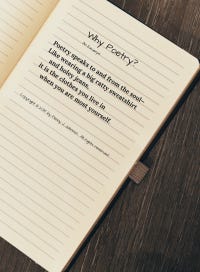 Why Poetry?
An Excerpt
Poetry speaks to and from the soul–
Like wearing a big ratty sweatshirt
and holey jeans.
It is the clothes you live in
when you are most yourself.
Copyright © by J. Johnson. All rights reserved.